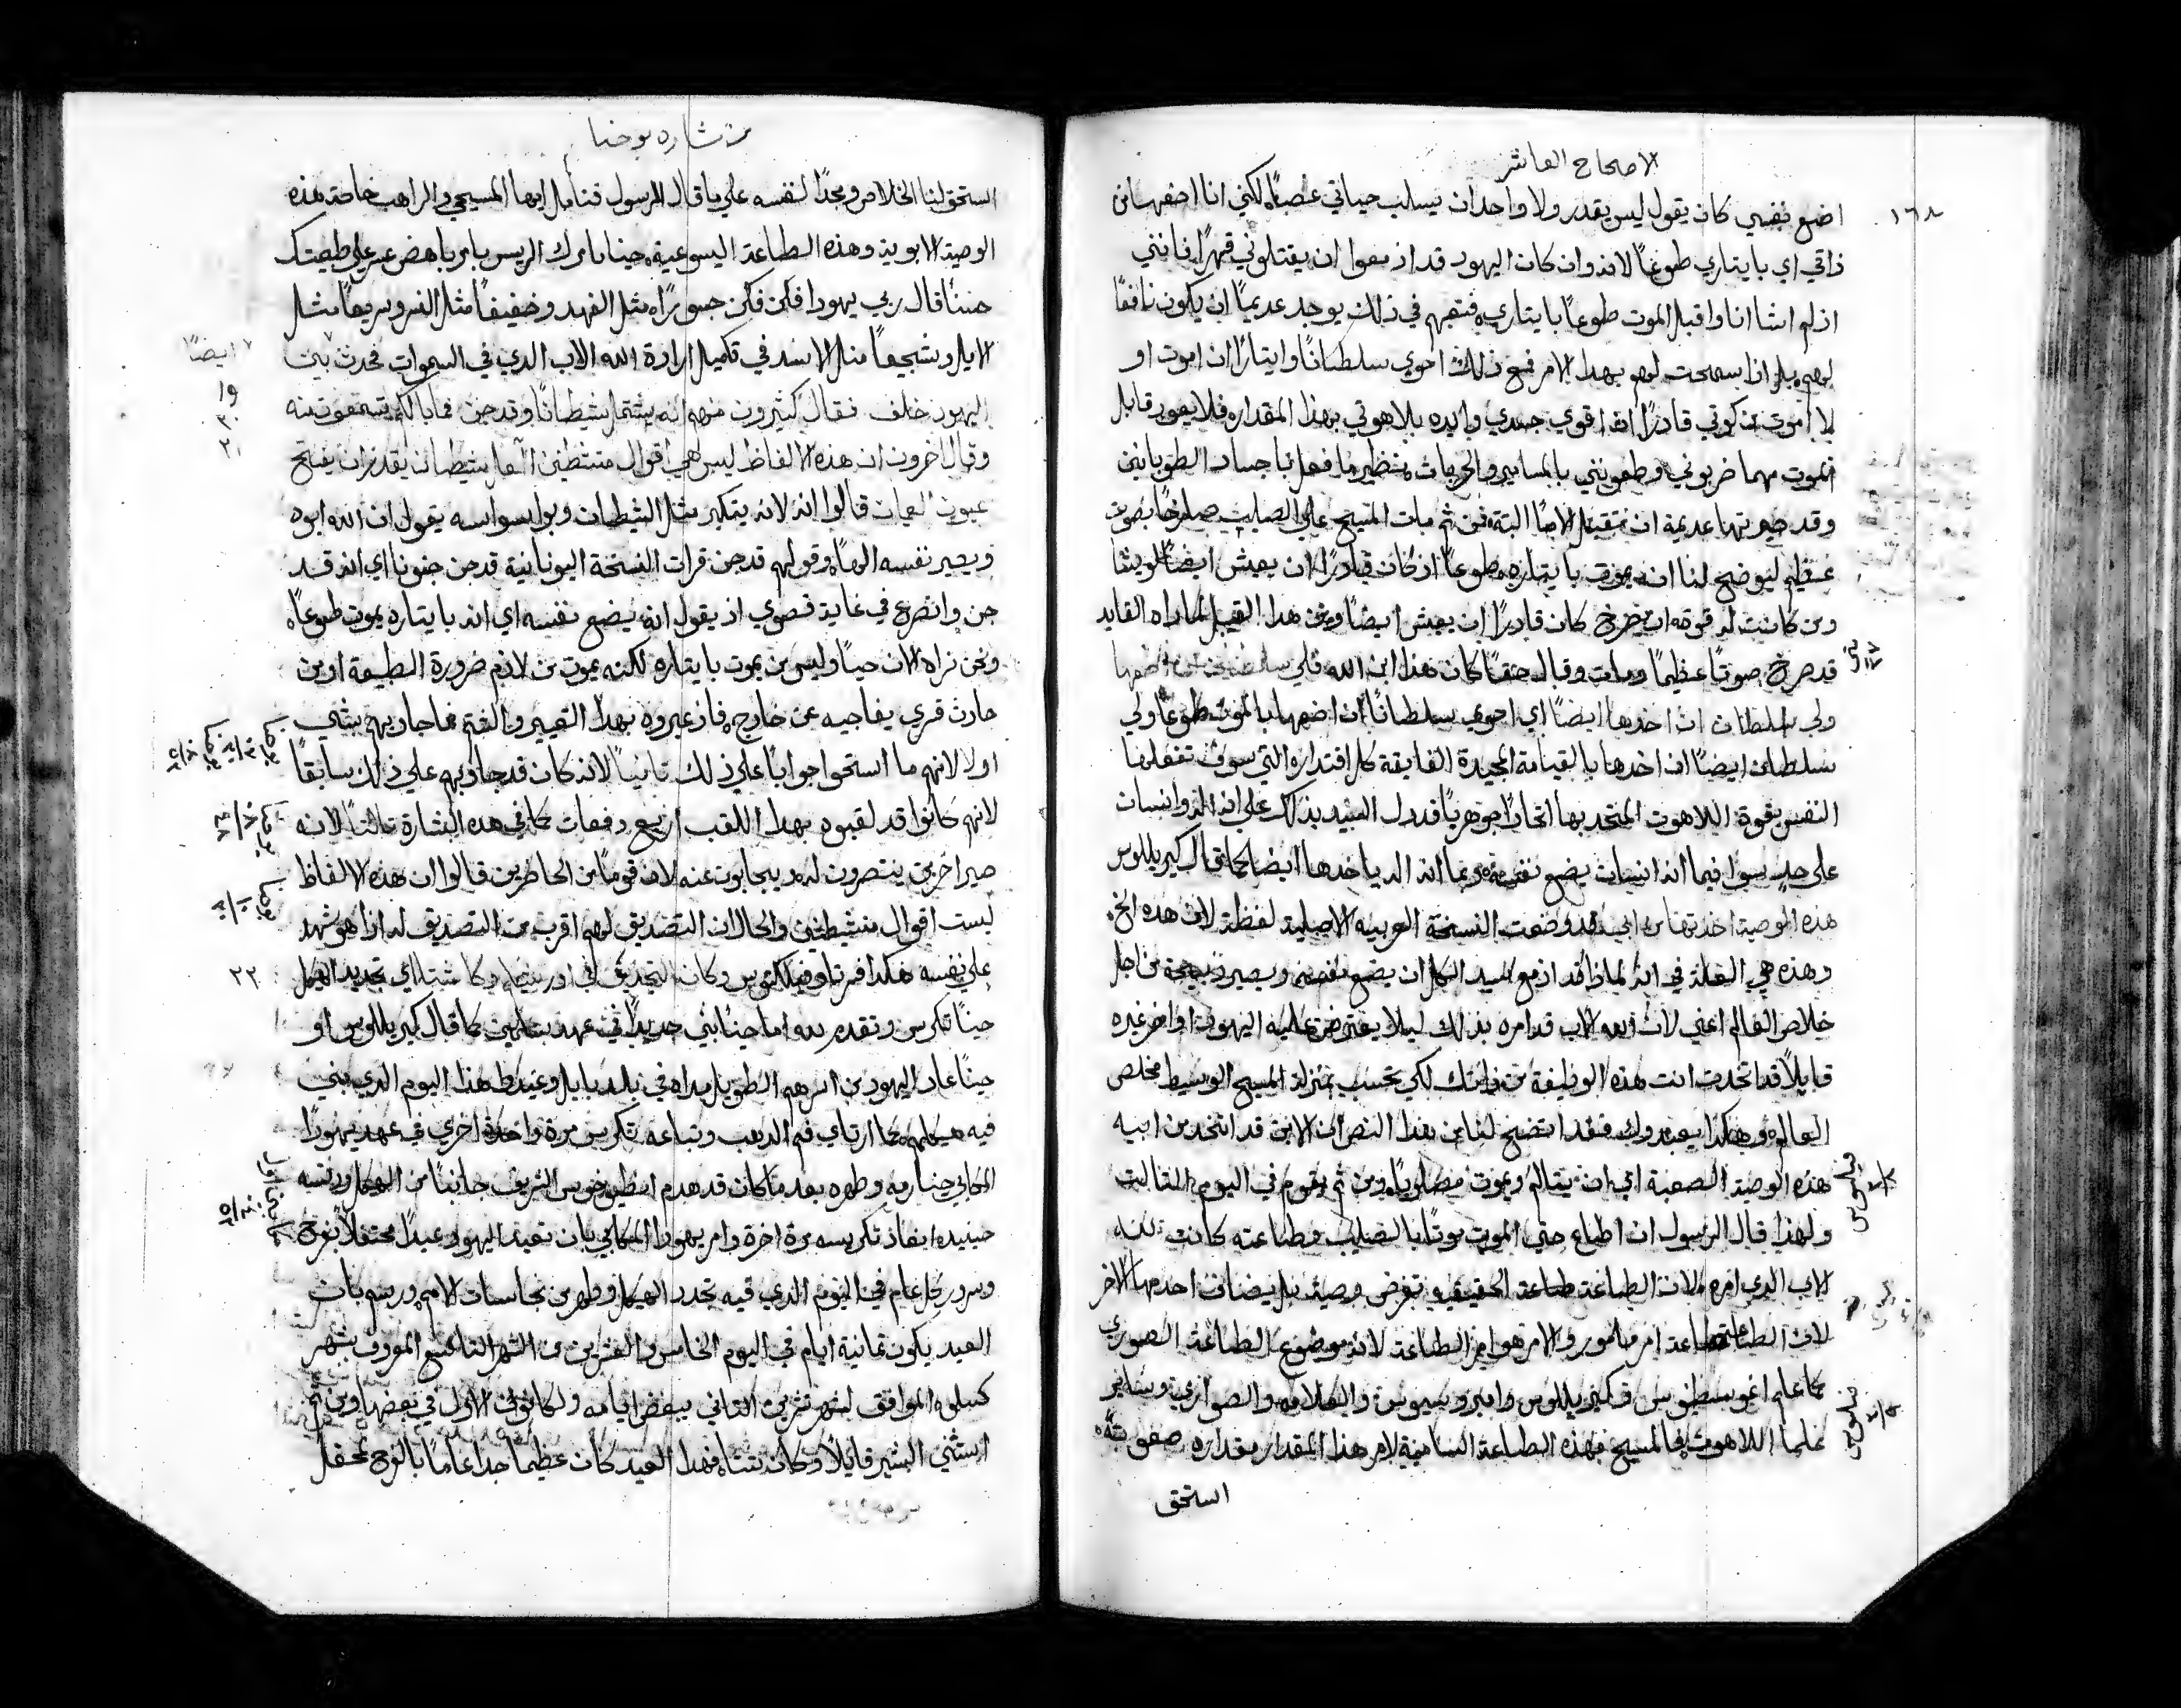 الاصحاح العاشر
١٦٨
اضع نفسي كان يقول ليس يقدر ولا واحد ان يسلب حياتي غصبًا لكني انا اضعها من
ذاتي اي بايثاري طوعًا لانه وان كان اليهود قد ازمعوا ان يقتلوني قهرًا فانني
اذ لم اشا انا واقبل الموت طوعًا بايثاري فتعبهم في ذلك يوجد عديمًا ان يكون نافعًا
لهم بل اذا سمحت لهم بهذا الامر فمع ذلك احوي سلطانًا وايثارًا ان اموت او
لا اموت من كوني قادرًا ان اقوي جسدي وايده بلاهوتي بهذا المقدار فلا يعود قابل
الموت مهما ضربوني وطعنوني بالمسامير والحربات نظير ما فعل باجساد الطوبانيين
وقد صيرتها عديمة ان تقبل الامًا البتة فمن ثم مات المسيح علي الصليب صارخًا بصوت
عظيم ليوضح لنا انه يموت بايثاره طوعًا اذ كان قادرًا ان يعيش ايضًا لو يشا
ومن كانت له قوة ان يصرخ كان قادرًا ان يعيش ايضًا ومن هذا القبيل لما راه القايد
قد صرخ صوتًا عظيمًا ومات وقال حقًا كان هذا ابن الله فلي سلطان ان اضعها
ولي سلطان ان اخدها ايضًا اي احوي سلطانًا ان اضعها بالموت طوعًا ولي
سلطان ايضًا ان اخدها بالقيامة المجيدة الفايقة كل اقتدار التي سوف تفعلها
النفس بقوة اللاهوت المتحد بها اتحادًا جوهريًا فدل السيد بذلك علي انه اله وانسان
علي حدٍ سوا فبما انه انسان يضع نفسه وبما انه اله ياخدها ايضًا كما قال كيريللوس
هذه الوصية اخدتها من ابي قد وضعت النسخة العربيه الاصلية لفظة لان هده الخ
وهذه هي العلة في انه لماذا قد ازمع السيد الكل ان يضع نفسه ويصير ذبيحة من اجل
خلاص العالم اعني لان الله الاب قد امره بذلك ليلا يعترض عليه اليهود او اخر غيره
قايلًا قد اتخدت انت هذه الوظيفة من ذاتك لكي تحسب بمنزلة المسيح الوسيط مخلص
العالم وهكذا يعبدوك فقد اتضح لنا من هذا النص ان الابن قد اتخد من ابيه
هذه الوصية الصعبة اي ان يتالم ويموت مصلوبًا ومن ثم يقوم في اليوم الثالث
ولهذا قال الرسول انه اطاع حتي الموت موتًا بالصليب وطاعته كانت لله
الاب الذي امره لان الطاعة طاعة الحقيقيه تفرض وصية بل يضاف احدهما للاخر
لان الطاعة طاعة امر مامور والامر هو امر الطاعة لانه موضوع الطاعة الصوري
كما علم اغوسطينوس وكيريللوس وامبروسيوس والعلامه والصوابري وساير
علما اللاهوت فالمسيح بهذه الطاعة السامية لامر هذا المقدار مقداره صفق شقه
استحق
من بشاره يوحنا
استحق لنا الخلاص ومجدًا لنفسه علي ما قال الرسول فتامل ايها المسيحي والراهب خاصة هذه
الوصية الابوية وهذه الطاعة اليسوعية حينا يامرك الريس بامر باهض عسر علي طبيعتك
حسنًا قال ربي يهودا فكن فكن جسورًا مثل الفهد وخفيفًا مثل النسر وسريعًا مثل
الايل وشجيعًا مثل الاسد في تكميل ارادة الله الاب الدي في السموات فحدث بين
ايضًا
١٩
٢٠
٢١
اليهود خلف فقال كثيرون منهم انه يشتمل شيطانًا وقد جن فما بالكم تسمعون منه
وقال اخرون ان هذه الالفاظ ليس هي اقوال متشيطن العل شيطان يقدر ان يفتح
عيون العميان قالوا انه لانه يتكبر مثل الشيطان وبوسواسه يقول ان الله ابوه
ويصير نفسه الهًا وقولهم قد جن قرات النسخة اليونانية قد جن جنونًا اي انه قد
جن وانصرع في غاية قصوي اذ يقول انه يضع نفسه اي انه بايثاره يموت طوعًا
ونحن نراه الان حيًا وليس من يموت بايثاره لكنه يموت من لازم ضرورة الطبيعة او من
حادث قسري يفاجيه من خارج فاذ عيروه بهذا التعيير والشتم فما جاوبهم بشي
اولا لانهم ما استحقوا جوابًا علي ذلك ثانيًا لانه كان قد جاوبهم علي ذلك سابقًا
لانهم كانوا قد لقبوه بهذا اللقب اربع دفعات كما في هده البشارة ثالثًا لانه
صير اخرين ينتصرون له ويجابون عنه لان قومًا من الحاضرين قالوا ان هذه الالفاظ
ليست اقوال متشيطن والحال ان التصديق لهم اقرب من التصديق له اذا هو شهد
علي نفسه هكذا فم الذهب وثيوفيلكتوس وكان التجديد في اورشليم وكان شتا اي تجديد الهيكل
٢٢
حينًا تكرس وتقدم لله اما حينًا بني جديدًا في عهد سليمن كما قال كيريللوس او
حينًا عاد اليهود من اسرهم الطويل مداه في بلد بابل وعيدط هذا اليوم الدي بني
فيه هيكلهم كما ارتاي فم الذهب وتباعه تكرس مرة واحدة اخري في عهد يهودا
المكابي حينًا رمه وطهره بعد ما كان قد هدم انطيوخوس الشريف جانبًا من الهيكل ودنسه
حينيده انفاذ تكريسه مرة اخرة وامر يهودا المكابي بان تعيد اليهود عيدًا محتفلًا بفرح
وسرور كل عام في اليوم الدي فيه تجدد الهيكل وطهر من نجاسات الامم ورسم بان
العيد يكون ثمانية ايام في اليوم الخامس والعشرين من الشهر التاسع المعروف بشهر
كسلو الموافق لشهر تشرين الثاني ببعض ايامه ولكانون الاول في بعضها ومن ثم
استثني البشير قايلًا وكان شتا فهذا العيد كان عظيما جدا عاما بالفرح محفل